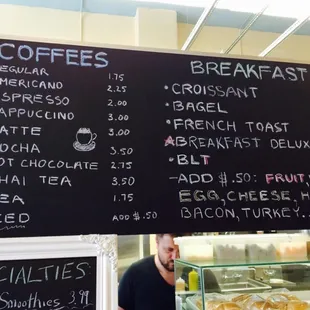 COFFEES
EGULAR 1.75
MERICANO 2.25
SPRESSO 2.00
APPUCCINO 2.00
ATTE 3.00
OCHA 3.50
OT CHOCOLATE 2.75
HAI TEA 3.50
EA 1.75
CED ADD $.50
BREAKFAST
•CROISSANT
•BAGEL
•FRENCH TOAST
BREAKFAST DELUX
•BLT
—ADD $.50: FRUIT,
EGG, CHEESE, H
BACON, TURKEY..
CIALTIES:
Smoothies 3.99